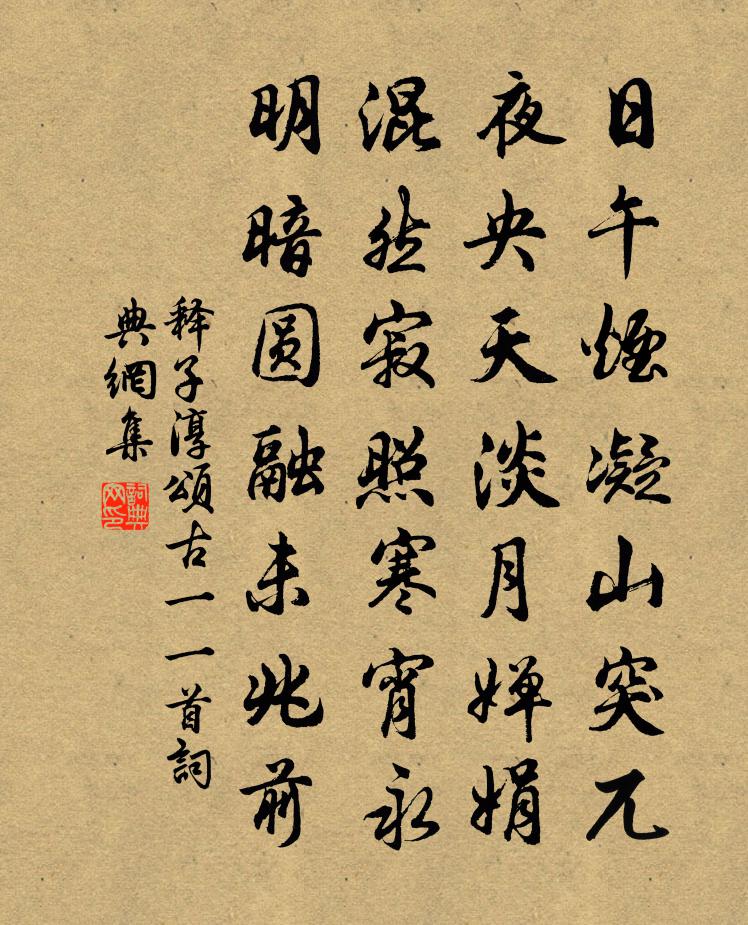 日午煙凝山突兀
夜央天淡月嬋娟
混然寂照寒宵永
明暗圆融未兆前
释子淳頌古一一首詞
典網集
詞典
网印